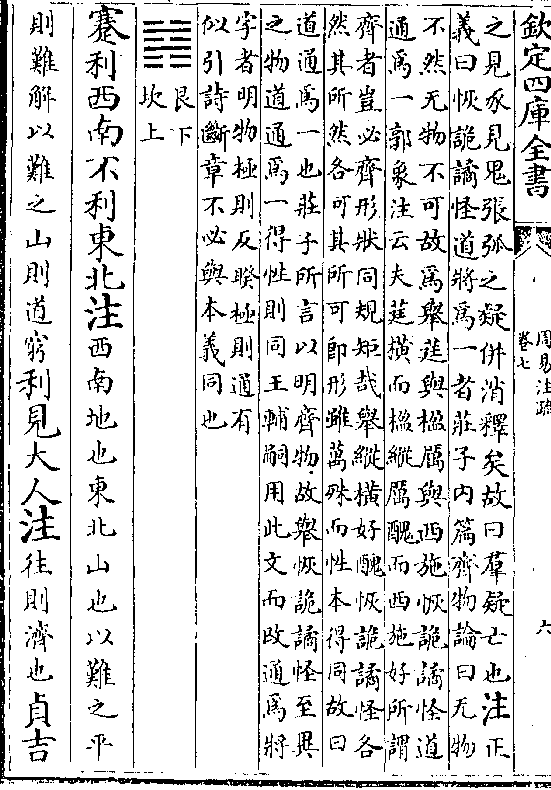 欽定四庫全書
周易注疏
卷七
六
之見豕見鬼張弧之疑併消釋矣故曰羣疑亡也注正
義曰恢詭譎怪道將爲一者莊子内篇齊物論曰无物
不然无物不可故爲舉莛與楹厲與西施恢詭譎怪道
通爲一郭象注云夫莛橫而楹縱厲醜而西施好所謂
齊者豈必齊形狀同規矩哉舉縱橫好醜恢詭譎怪各
然其所然各可其所可即形雖萬殊而性本得同故曰
道通爲一也莊子所言以明齊物故舉恢詭譎怪至異
之物道通爲一得性則同王輔嗣用此文而改通爲將
字者明物極則反睽極則通有
似引詩斷章不必與本義同也
艮下
坎上
蹇利西南不利東北注西南地也東北山也以難之平
則難解以難之山則道窮利見大人注往則濟也貞吉